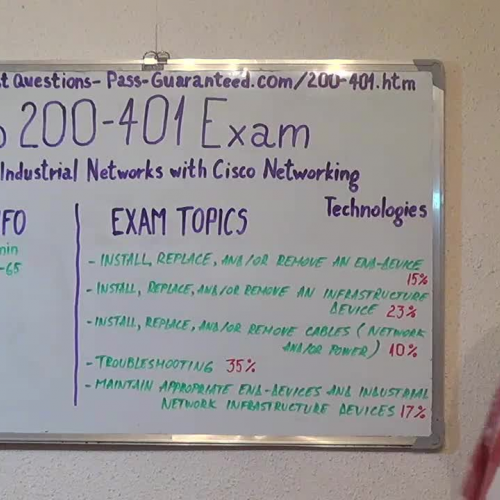 t Questions- Pass-Guaranteed.com/200-401.htm
o 200-401 Exam
Industrial Networks with Cisco Networking
Technologies
FO
min
-65
EXAM TOPICS
- INSTALL, REPLACE, AND/OR REMOVE AN END-DEVICE
15%
- INSTALL, REPLACE, AND/OR REMOVE AN INFRASTRUCTURE
DEVICE 23%
- INSTALL, REPLACE, AND/OR REMOVE CABLES (NETWORK
AND/OR POWER) 10%
- TROUBLESHOOTING 35%
- MAINTAIN APPROPRIATE END-DEVICES AND INDUSTRIAL
NETWORK INFRASTRUCTURE DEVICES 17%